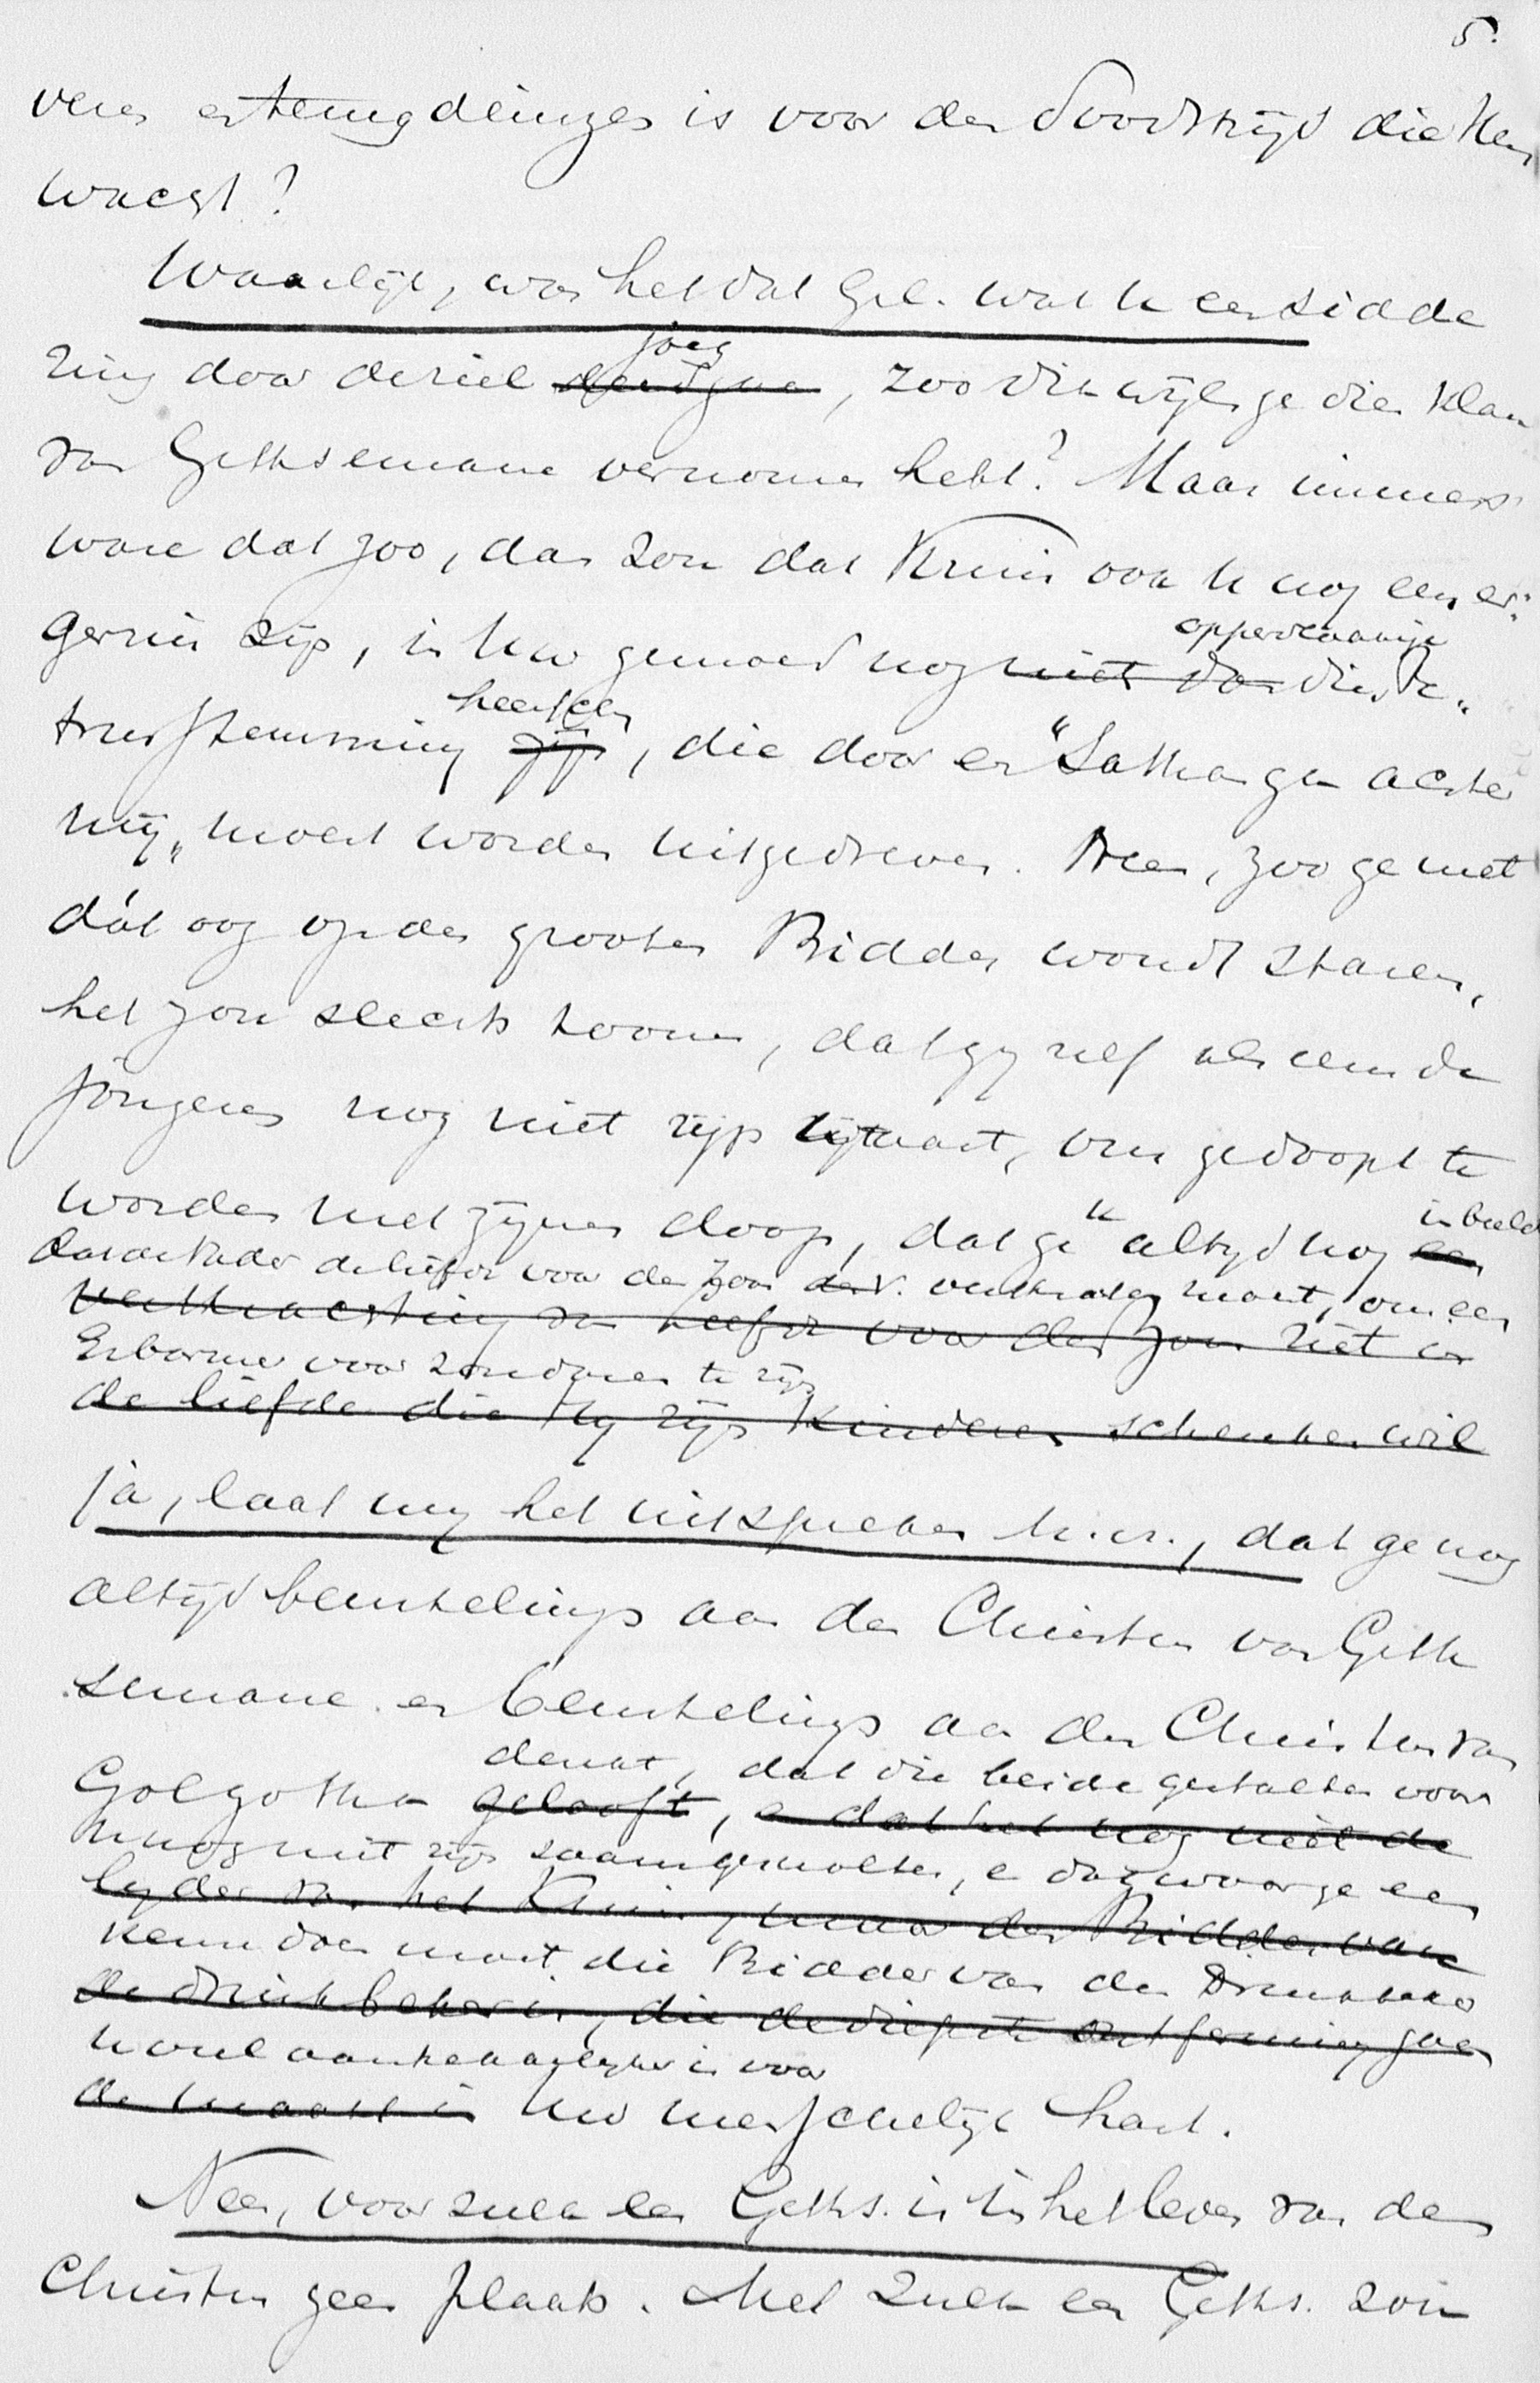 5.
veren en terugdeinzen is voor den doodstrijd die Hem
wacht?
Waarlijk, was het dat Gel. wat U een sidde
ring door de ziel joeg, zoo dikwijls ge dien klan
van Gethsemane vernomen hebt? Maar immers
ware dat zoo, dan zou dat Kruis ook U nog een er-
gernis zijn, in Uw gemoed nog oppermachtig die Pe-
trus stemming heerschen, die door een "Sathan ga achter
mij" moest worden uitgedreven. Neen, zoo ge met
dát oog op den grooten Bidder woudt staren,
het zou slechts toonen, dat gij zelf als een der
jongeren nog niet rijp waart, om gedoopt te
worden met zijnen doop, dat ge U altijd nog inbeeld
dat de Vader de liefde voor den Zoon verkrachten moest, om een
Erbarmer voor zondaren te zijn
ja, laat mij het uitspreken M. vr., dat ge nog
altijd beurtelings aan den Christus van Geth
semane en beurtelings aan den Christus van
Golgotha denkt, dat die beide gestalten voor
U nog niet zijn saamgesmolten, en dat waar ge een
keuze doen moet die Bidder van den Drinkbeker
U veel aantrekkelijker is voor
Uw menschelijk hart.
Neen, voor zulk een Geths. is in het leven van den
Christus geen plaats. Met zulk een Geths. zou